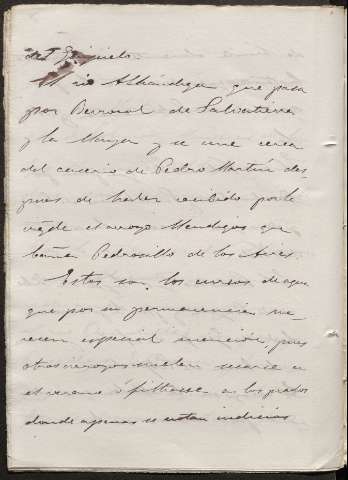 del
El rio Alhándiga que pasa
por Berrocal de Salvatierra
y la Maya y se une cerca
del caserio de Pedro Martín des
pues de haber recibido por la
el arroyo Mendigos que
baña Pedrosillo de los Aires.
Estos son los cursos de agua
que por su permanencia me
recen especial mención, pues
otros arroyos suelen secarse en
el verano ó filtrarse en los prados
donde apenas se notan indicios